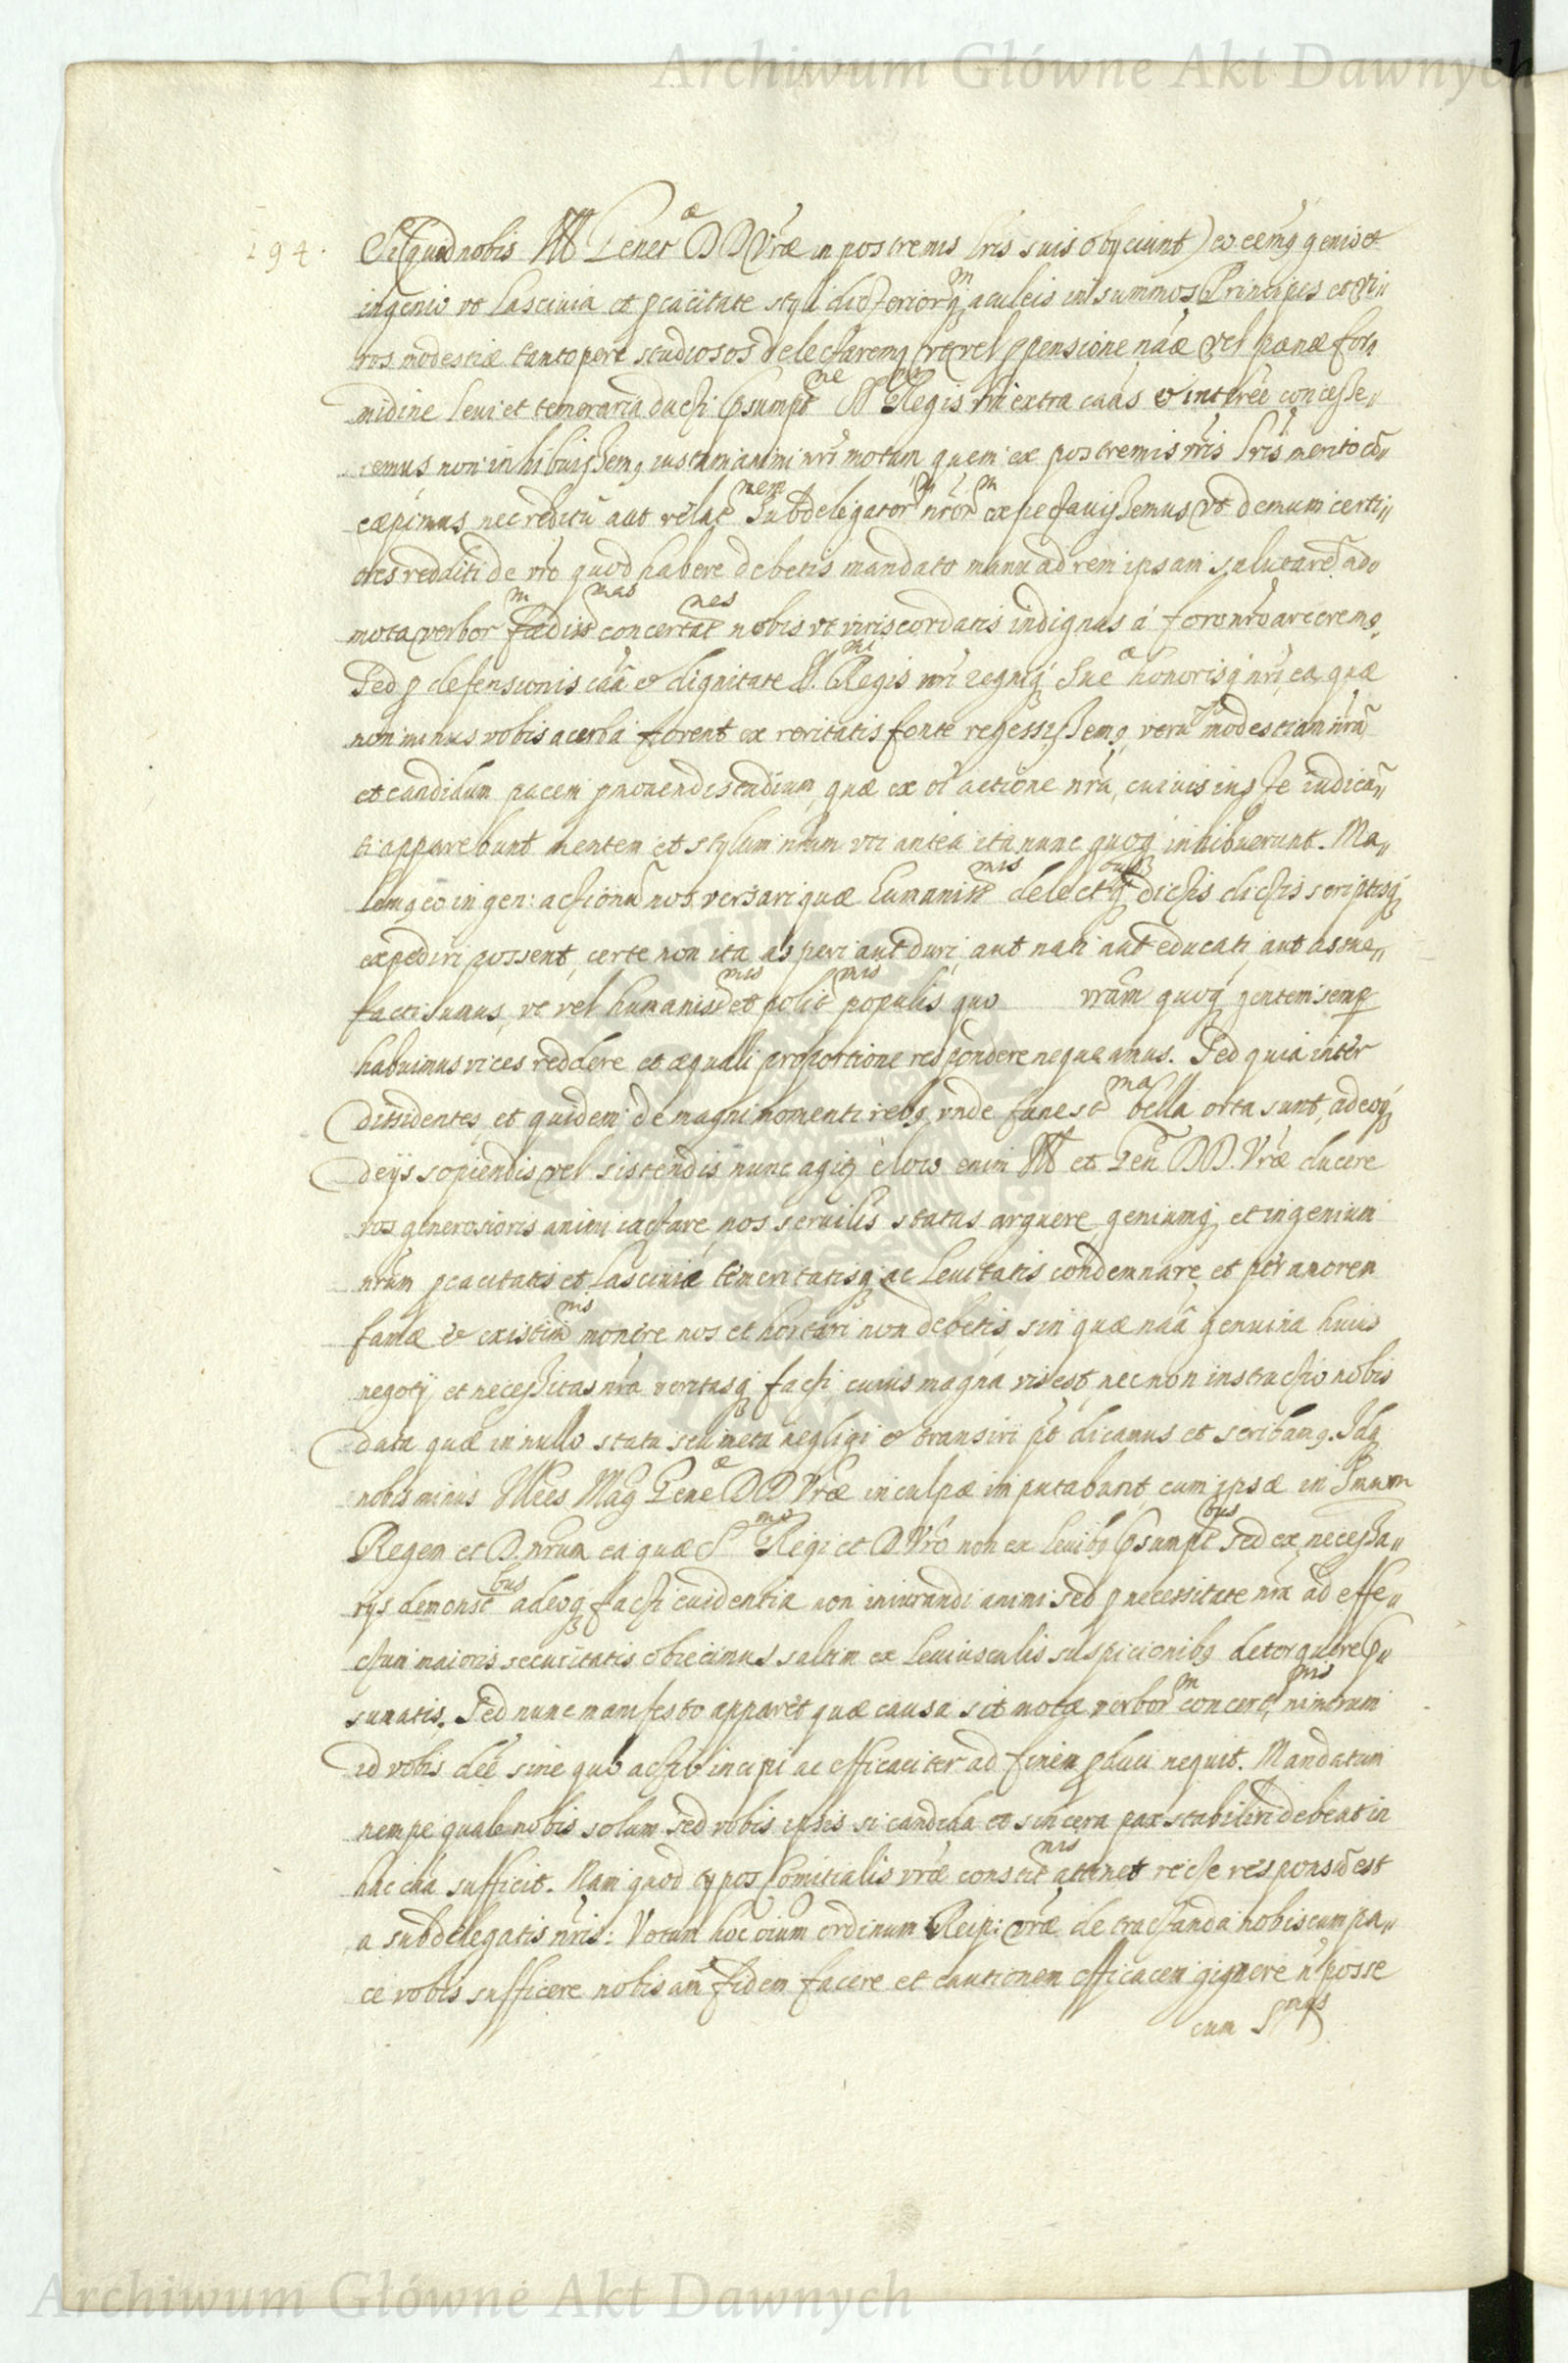 Archiwum Główne Akt Dawnych
294.
Si (quod nobis Gener^æ DD Vræ in postremis lris suis obyciunt) eo eemq genio et
ingenio vt lasciuia et pcacitate styli dicterior^mq aculeis in summos Principes et vi„
ros modestiæ tantopere studiosos delectaremq vt vel ppensione nâæ vel pœnæ for„
midine leui et temeraria ducti Psumpt^ne S^mi Regis vri extra caas & interee concesse„
remus non inhibuissemq iustum animi nri motum quem ex postremis vris lris merito cō„
cæpimus nec reditū aut relat^nem Subdelegator^m nror^m expectauissemus vt demum certi„
ores redditi de vro quod habere debetis mandato manu ad rem ipsam salutarē ad„
mota verbor^m fœdiss^mas concertat^nes nobis vt viris cordatis indignas á foro nro arceremq.
Sed p defensionis caâ & dignitate S.^mi Regis nri regniq Sue^æ honorisq nri, ea quæ
non minus vobis acerba forent ex veritatis fonte regessissemq, verū modestiam nrā
et candidum pacem pmouendi studium, quæ ex oi actione nra, cuiuis iuste iudicā„
ti apparebunt mentem et stylum nrum vti antea ita nunc quoq inhibuerunt. Ma„
lemq eo in gen: actionū nos versari quæ humaniss^mis delect^busq dictis dictis scriptisq
expediri possent, certe non ita asperi aut duri, aut nati aut educati aut assue„
facti sumus, vt vel humaniss^mis et polit^mis populis quo vram quoq gentem semp
habuimus vices reddere et æquali proportione respondere nequeamus. Sed quia inter
dissidentes et quidem de magni momenti rebq, vnde funest^ma bella orta sunt, adeoq
de ijs sopiendis vel sistendis nunc agit, è loco enim et Gen DD. Vræ ducere
vos generosioris animi iactare nos seruilis status arguere geniumq et ingenium
nrum pcacitatis et lasciuiæ temeritatisq ac leuitatis condemnare, et per amorem
famæ & existim^nis monere nos et hortari non debetis, sin quæ nââ genuina huius
negotij et necessitas nra veritasq facti cuius magna vis est, nec non instructio nobis
data quæ in nullo statu seu meta negligi & transiri pt dicamus et scribamq. Idq
nobis minus Mag Gene^æ DD Vræ in culpæ imputabunt, cum ipsæ in Smum
Regem et D. nrum ea quæ S^mo Regi et D Vro non ex leuibq Psumpt^bus sed ex necessa„
rijs demonst^bus adeoq facti euidentia non iniurandi animi sed p necessitate nra ad effe„
ctum maioris securitatis obiecimus saltim ex leuiusculis suspicionibq detorquere P„
sumatis. Sed nunc manifesto apparet quæ causa sit motæ verbor^m concert^nis, nimirum
id vobis deē sine quo actio incipi ac efficaciter ad finem pduci nequit. Mandatum
nempe quale nobis solum sed vobis ipsis si candida et sincera pax stabiliri debeat in
hac caa sufficit. Nam quod typos Comitialis vræ constit^nis attinet recte responsū est
a subdelegatis nris: Votum hoc oium ordinum Reip: vræ de tractanda nobiscum pa„
ce vobis sufficere nobis am fidem facere et cautionem efficacem gignere ñ posse
cum S^mqs
Archiwum Główne Akt Dawnych